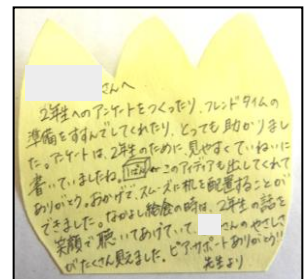 さんへ
2年生へのアンケートをつくったり、フレンドタイムの
準備をすすんでしてくれたり、とっても助かりまし
た。アンケートは、2年生のために、見やすくていねいに
書いていましたね。 このアイディアも出してくれて
ありがとう。おかげで、スムーズに机を配置することが
できました。なかよし給食の時は、2年生の話を
笑顔で聴いてあげていて、 さんのやさしさ
がたくさん見えました。ピアサポートありがとう!!
先生より